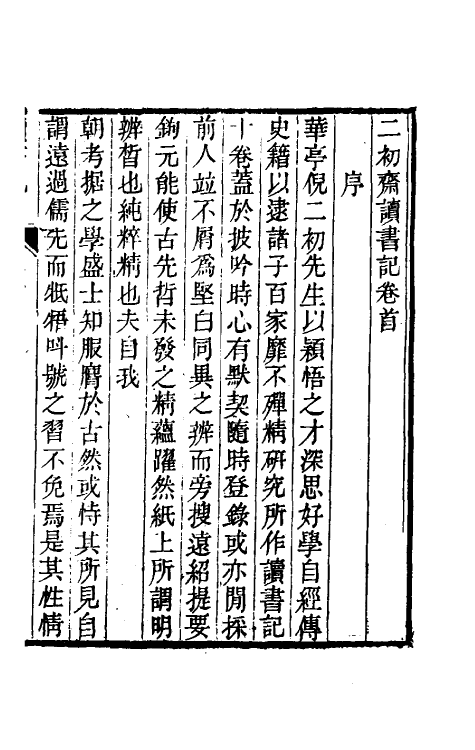 二初齋讀書記卷首
序
華亭倪二初先生以穎悟之才深思好學自經傳
史籍以逮諸子百家靡不殫精研究所作讀書記
十卷蓋於披吟時心有默契隨時登錄或亦閒採
前人竝不屑爲堅白同異之辨而旁搜遠紹提要
鉤元能使古先哲未發之精蘊躍然紙上所謂明
辨晳也純粹精也夫自我
朝考據之學盛士知服膺於古然或恃其所見自
謂遠過儒先而牴牾叫號之習不免焉是其性情